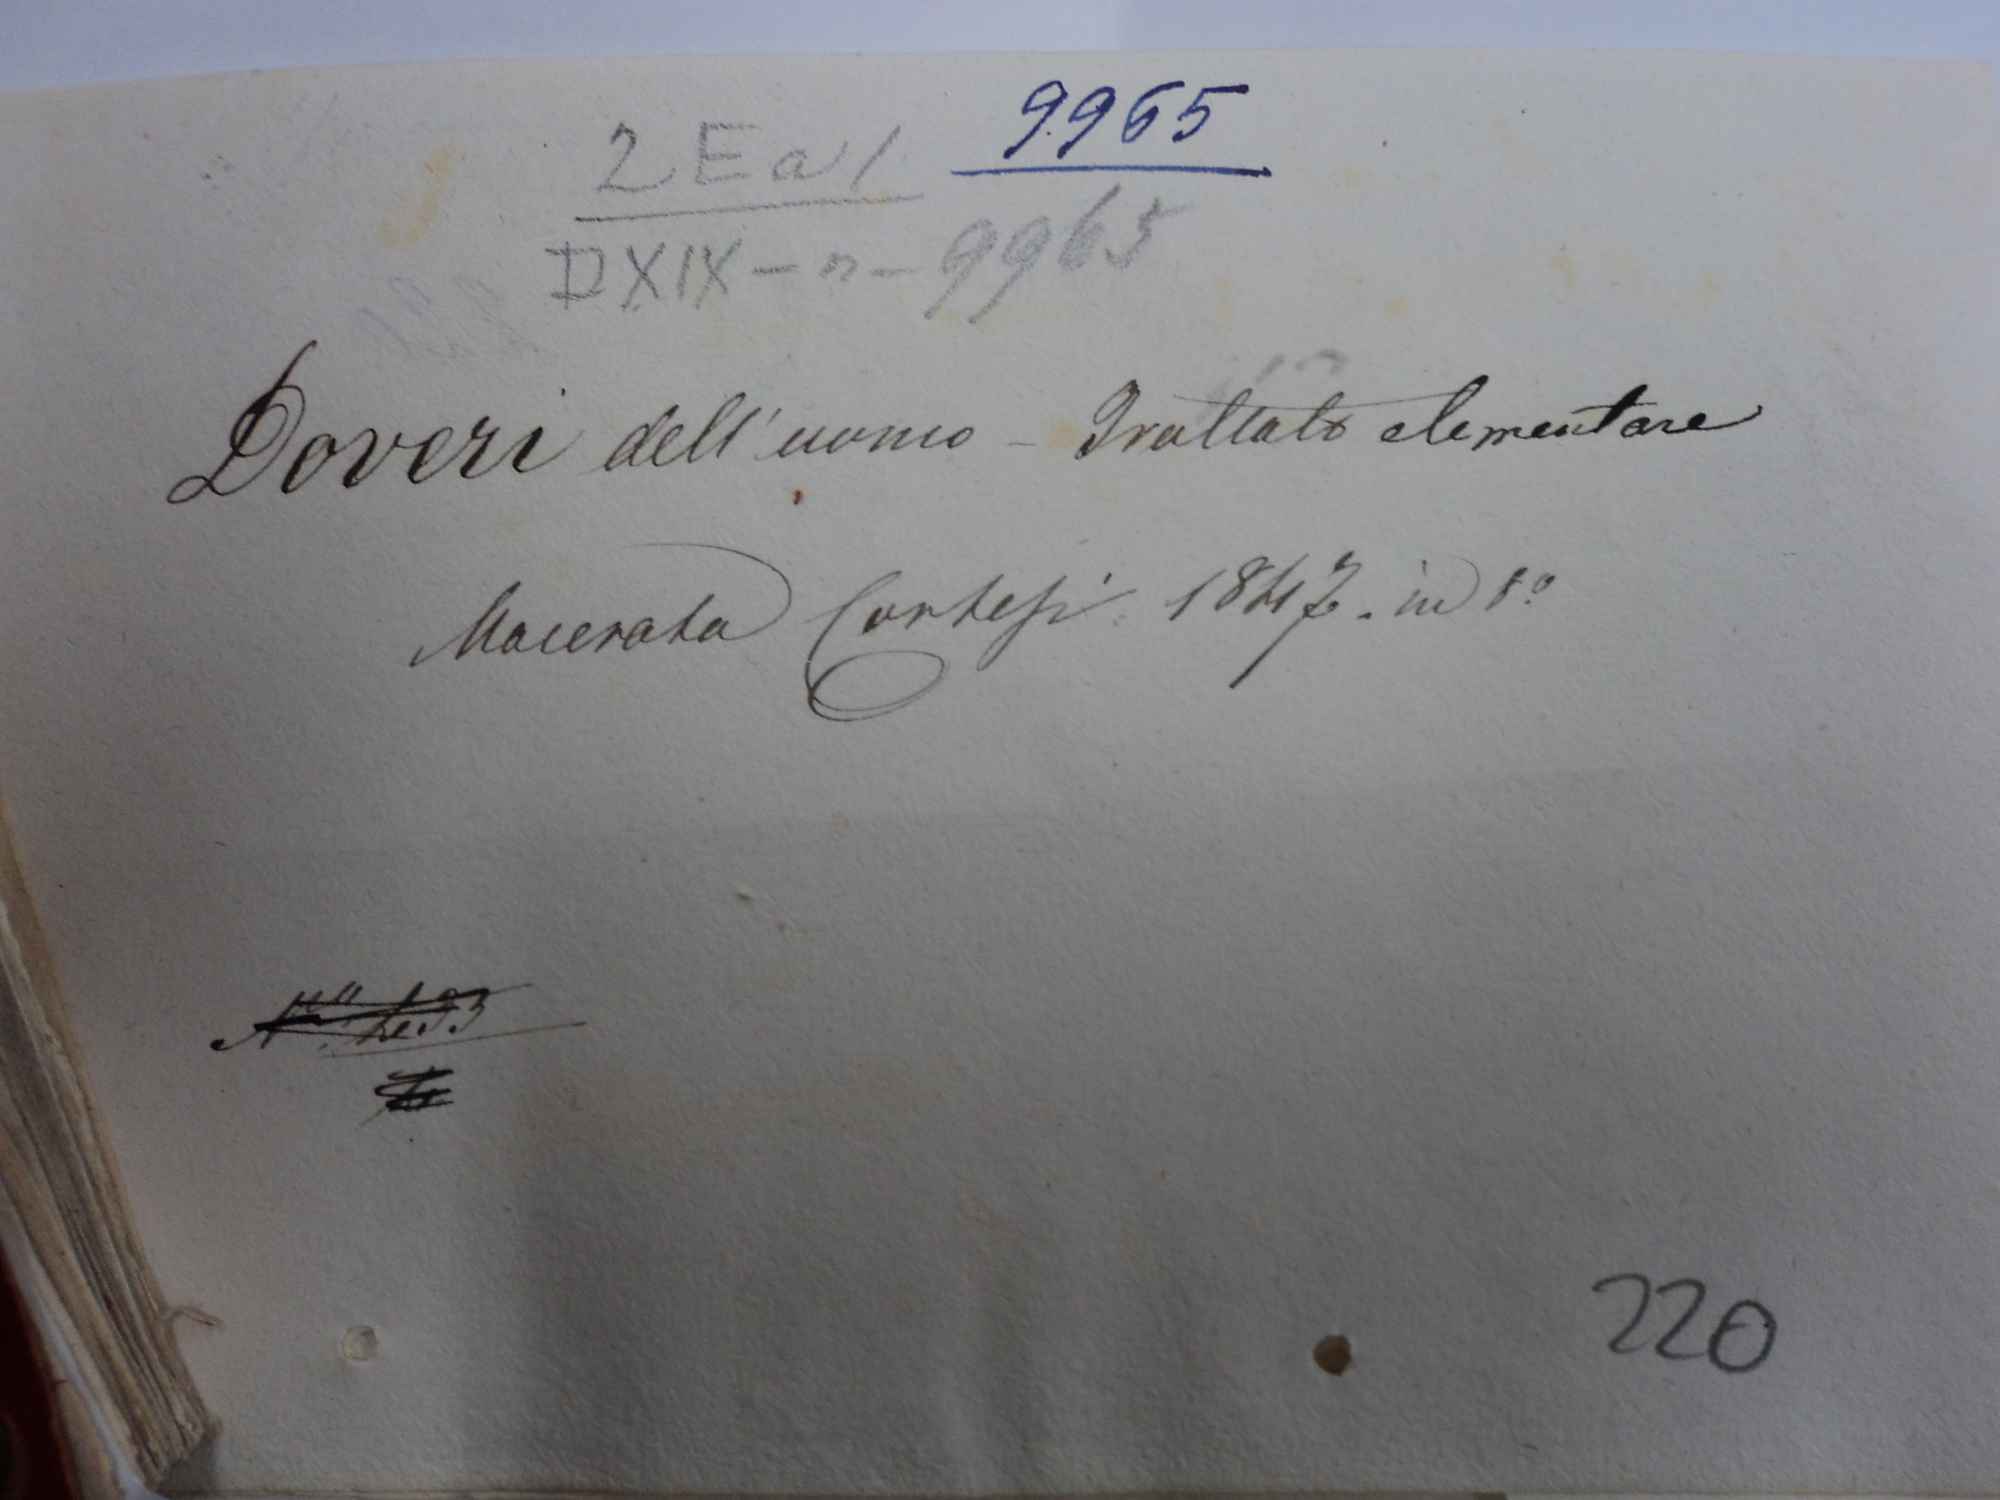 9965
2 Ea 1
D XIX - n - 9965
Doveri dell'uomo - Trattato elementare
Macerata Cortesi 1847. in 8º
220